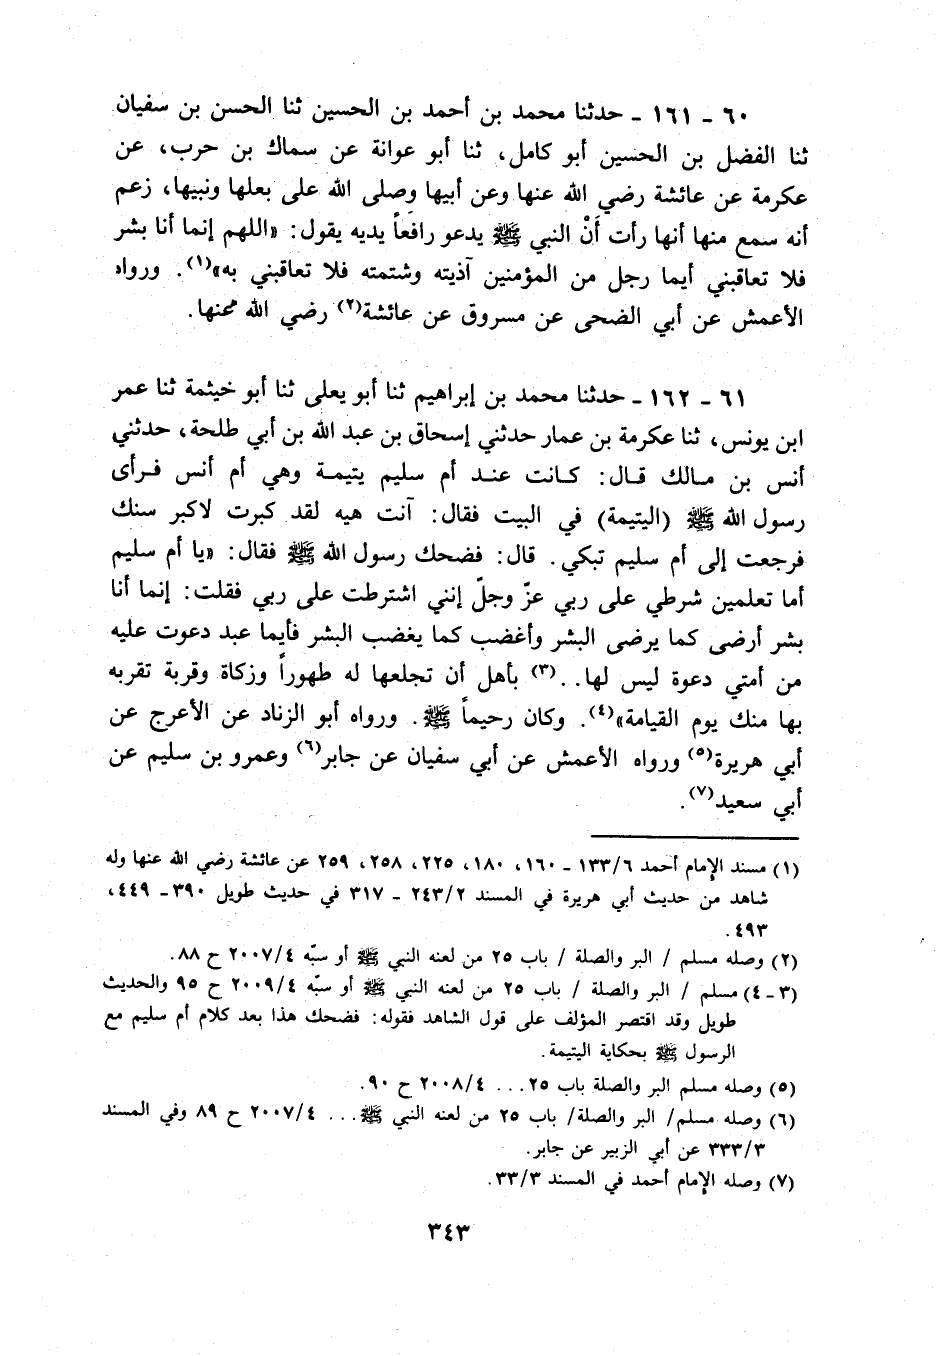 ٦٠ - ١٦١ - حدثنا محمد بن أحمد بن الحسين ثنا الحسن بن سفيان
ثنا الفضل بن الحسين أبو كامل، ثنا أبو عوانة عن سماك بن حرب، عن
عكرمة عن عائشة رضي الله عنها وعن أبيها وصلى الله على بعلها ونبيها، زعم
أنه سمع منها أنها رأت أَنْ النبي ﷺ يدعو رافعاً يديه يقول: «اللهم إنما أنا بشر
فلا تعاقبني أيما رجل من المؤمنين آذيته وشتمته فلا تعاقبني به»(١). ورواه
الأعمش عن أبي الضحى عن مسروق عن عائشة(٢) رضي الله عنها.
٦١ - ١٦٢ - حدثنا محمد بن إبراهيم ثنا أبو يعلى ثنا أبو خيثمة ثنا عمر
ابن يونس، ثنا عكرمة بن عمار حدثني إسحاق بن عبد الله بن أبي طلحة، حدثني
أنس بن مالك قال: كانت عند أم سليم يتيمة وهي أم أنس فرأى
رسول الله ﷺ (اليتيمة) في البيت فقال: آنت هيه لقد كبرت لاكبر سنك
فرجعت إلى أم سليم تبكي. قال: فضحك رسول الله ﷺ فقال: «يا أم سليم
أما تعلمين شرطي على ربي عزّ وجلّ إنني اشترطت على ربي فقلت: إنما أنا
بشر أرضى كما يرضى البشر وأغضب كما يغضب البشر فأيما عبد دعوت عليه
من أمتي دعوة ليس لها..(٣) بأهل أن تجلعها له طهوراً وزكاة وقربة تقربه
بها منك يوم القيامة»(٤). وكان رحيماً ﷺ. ورواه أبو الزناد عن الأعرج عن
أبي هريرة(٥) ورواه الأعمش عن أبي سفيان عن جابر(٦) وعمرو بن سليم عن
أبي سعيد(٧).
(١) مسند الإمام أحمد ١٣٣/٦ - ١٦٠، ١٨٠، ٢٢٥، ٢٥٨، ٢٥٩ عن عائشة رضي الله عنها وله
شاهد من حديث أبي هريرة في المسند ٢٤٣/٢ - ٣١٧ في حديث طويل ٣٩٠ - ٤٤٩،
٤٩٣.
(٢) وصله مسلم / البر والصلة / باب ٢٥ من لعنه النبي ﷺ أو سبّه ٢٠٠٧/٤ ح ٨٨.
(٣ - ٤) مسلم / البر والصلة / باب ٢٥ من لعنه النبي ﷺ أو سبّه ٢٠٠٩/٤ ح ٩٥ والحديث
طويل وقد اقتصر المؤلف على قول الشاهد فقوله: فضحك هذا بعد كلام أم سليم مع
الرسول ﷺ بحكاية اليتيمة.
(٥) وصله مسلم البر والصلة باب ٢٥... ٢٠٠٨/٤ ح ٩٠.
(٦) وصله مسلم/ البر والصلة/ باب ٢٥ من لعنه النبي ﷺ... ٢٠٠٧/٤ ح ٨٩ وفي المسند
٣٣٣/٣ عن أبي الزبير عن جابر.
(٧) وصله الإمام أحمد في المسند ٣٣/٣.
٣٤٣